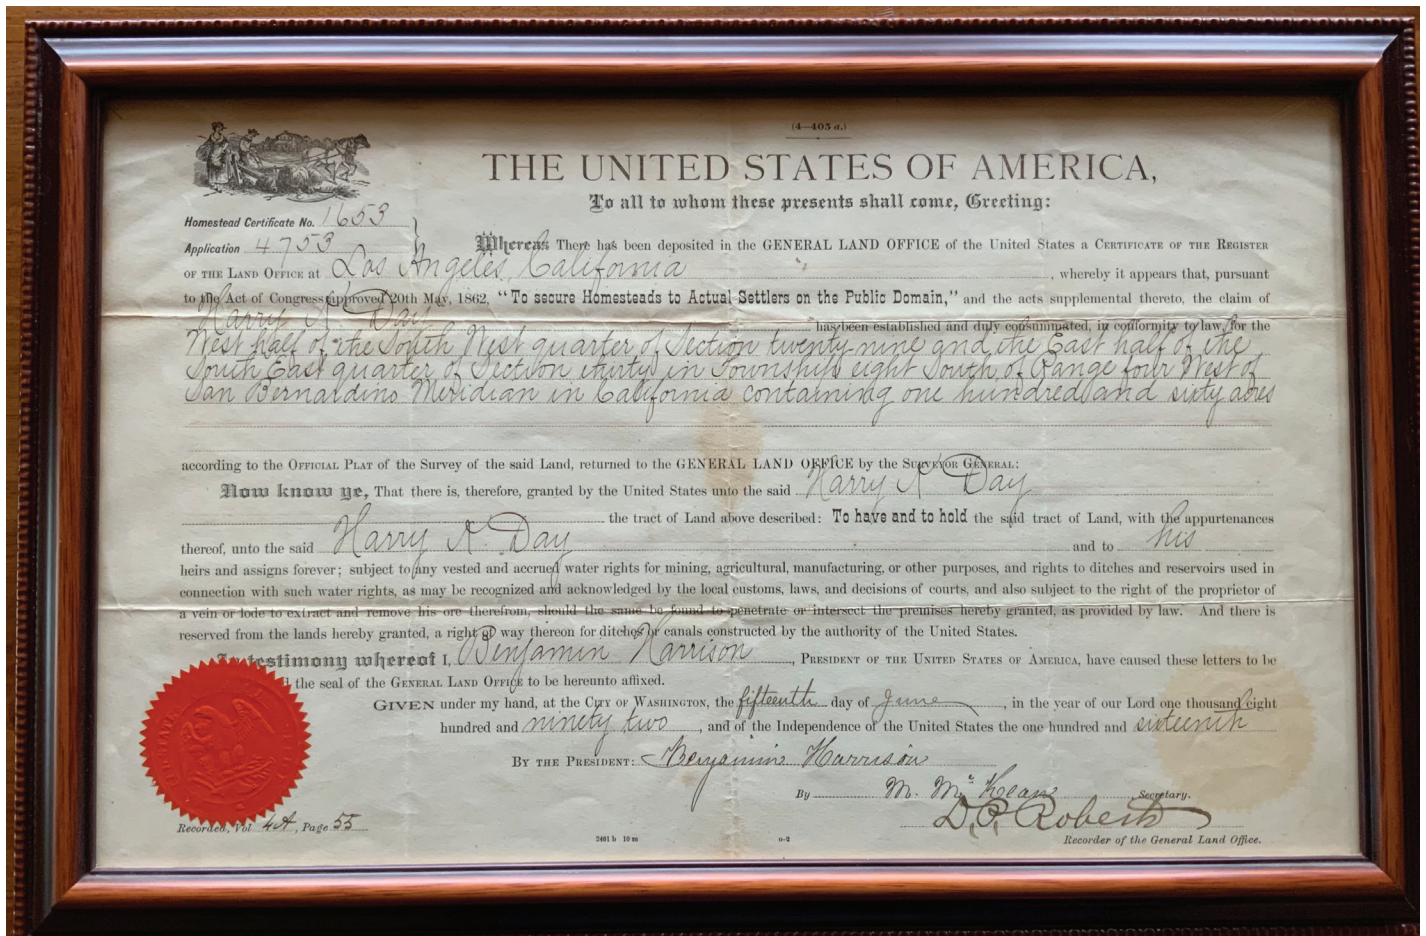 (4—403 a.)
THE UNITED STATES OF AMERICA,
To all to whom these presents shall come, Greeting:
Homestead Certificate No. 1653
Application 4753
Whereas There has been deposited in the GENERAL LAND OFFICE of the United States a CERTIFICATE OF THE REGISTER
OF THE LAND OFFICE at Los Angeles, California, whereby it appears that, pursuant
to the Act of Congress approved 20th May, 1862, "To secure Homesteads to Actual Settlers on the Public Domain," and the acts supplemental thereto, the claim of
Harry A. Day has been established and duly consummated, in conformity to law, for the
West half of the South West quarter of Section twenty-nine and the East half of the
South East quarter of Section thirty in Township eight South of Range four West of
San Bernardino Meridian in California containing one hundred and sixty acres
according to the OFFICIAL PLAT of the Survey of the said Land, returned to the GENERAL LAND OFFICE by the SURVEYOR GENERAL:
Now know ye, That there is, therefore, granted by the United States unto the said Harry A Day
the tract of Land above described: To have and to hold the said tract of Land, with the appurtenances
thereof, unto the said Harry A. Day and to his
heirs and assigns forever; subject to any vested and accrued water rights for mining, agricultural, manufacturing, or other purposes, and rights to ditches and reservoirs used in
connection with such water rights, as may be recognized and acknowledged by the local customs, laws, and decisions of courts, and also subject to the right of the proprietor of
a vein or lode to extract and remove his ore therefrom, should the same be found to penetrate or intersect the premises hereby granted, as provided by law. And there is
reserved from the lands hereby granted, a right of way thereon for ditches or canals constructed by the authority of the United States.
In testimony whereof I, Benjamin Harrison, PRESIDENT OF THE UNITED STATES OF AMERICA, have caused these letters to be
the seal of the GENERAL LAND OFFICE to be hereunto affixed.
GIVEN under my hand, at the CITY OF WASHINGTON, the fifteenth day of June, in the year of our Lord one thousand eight
hundred and ninety two, and of the Independence of the United States the one hundred and sixteenth
BY THE PRESIDENT: Benjamin Harrison
By M. McKean Secretary.
Recorded, Vol 4A, Page 55
D. P. Roberts
2461 b 10 m
o-2
Recorder of the General Land Office.